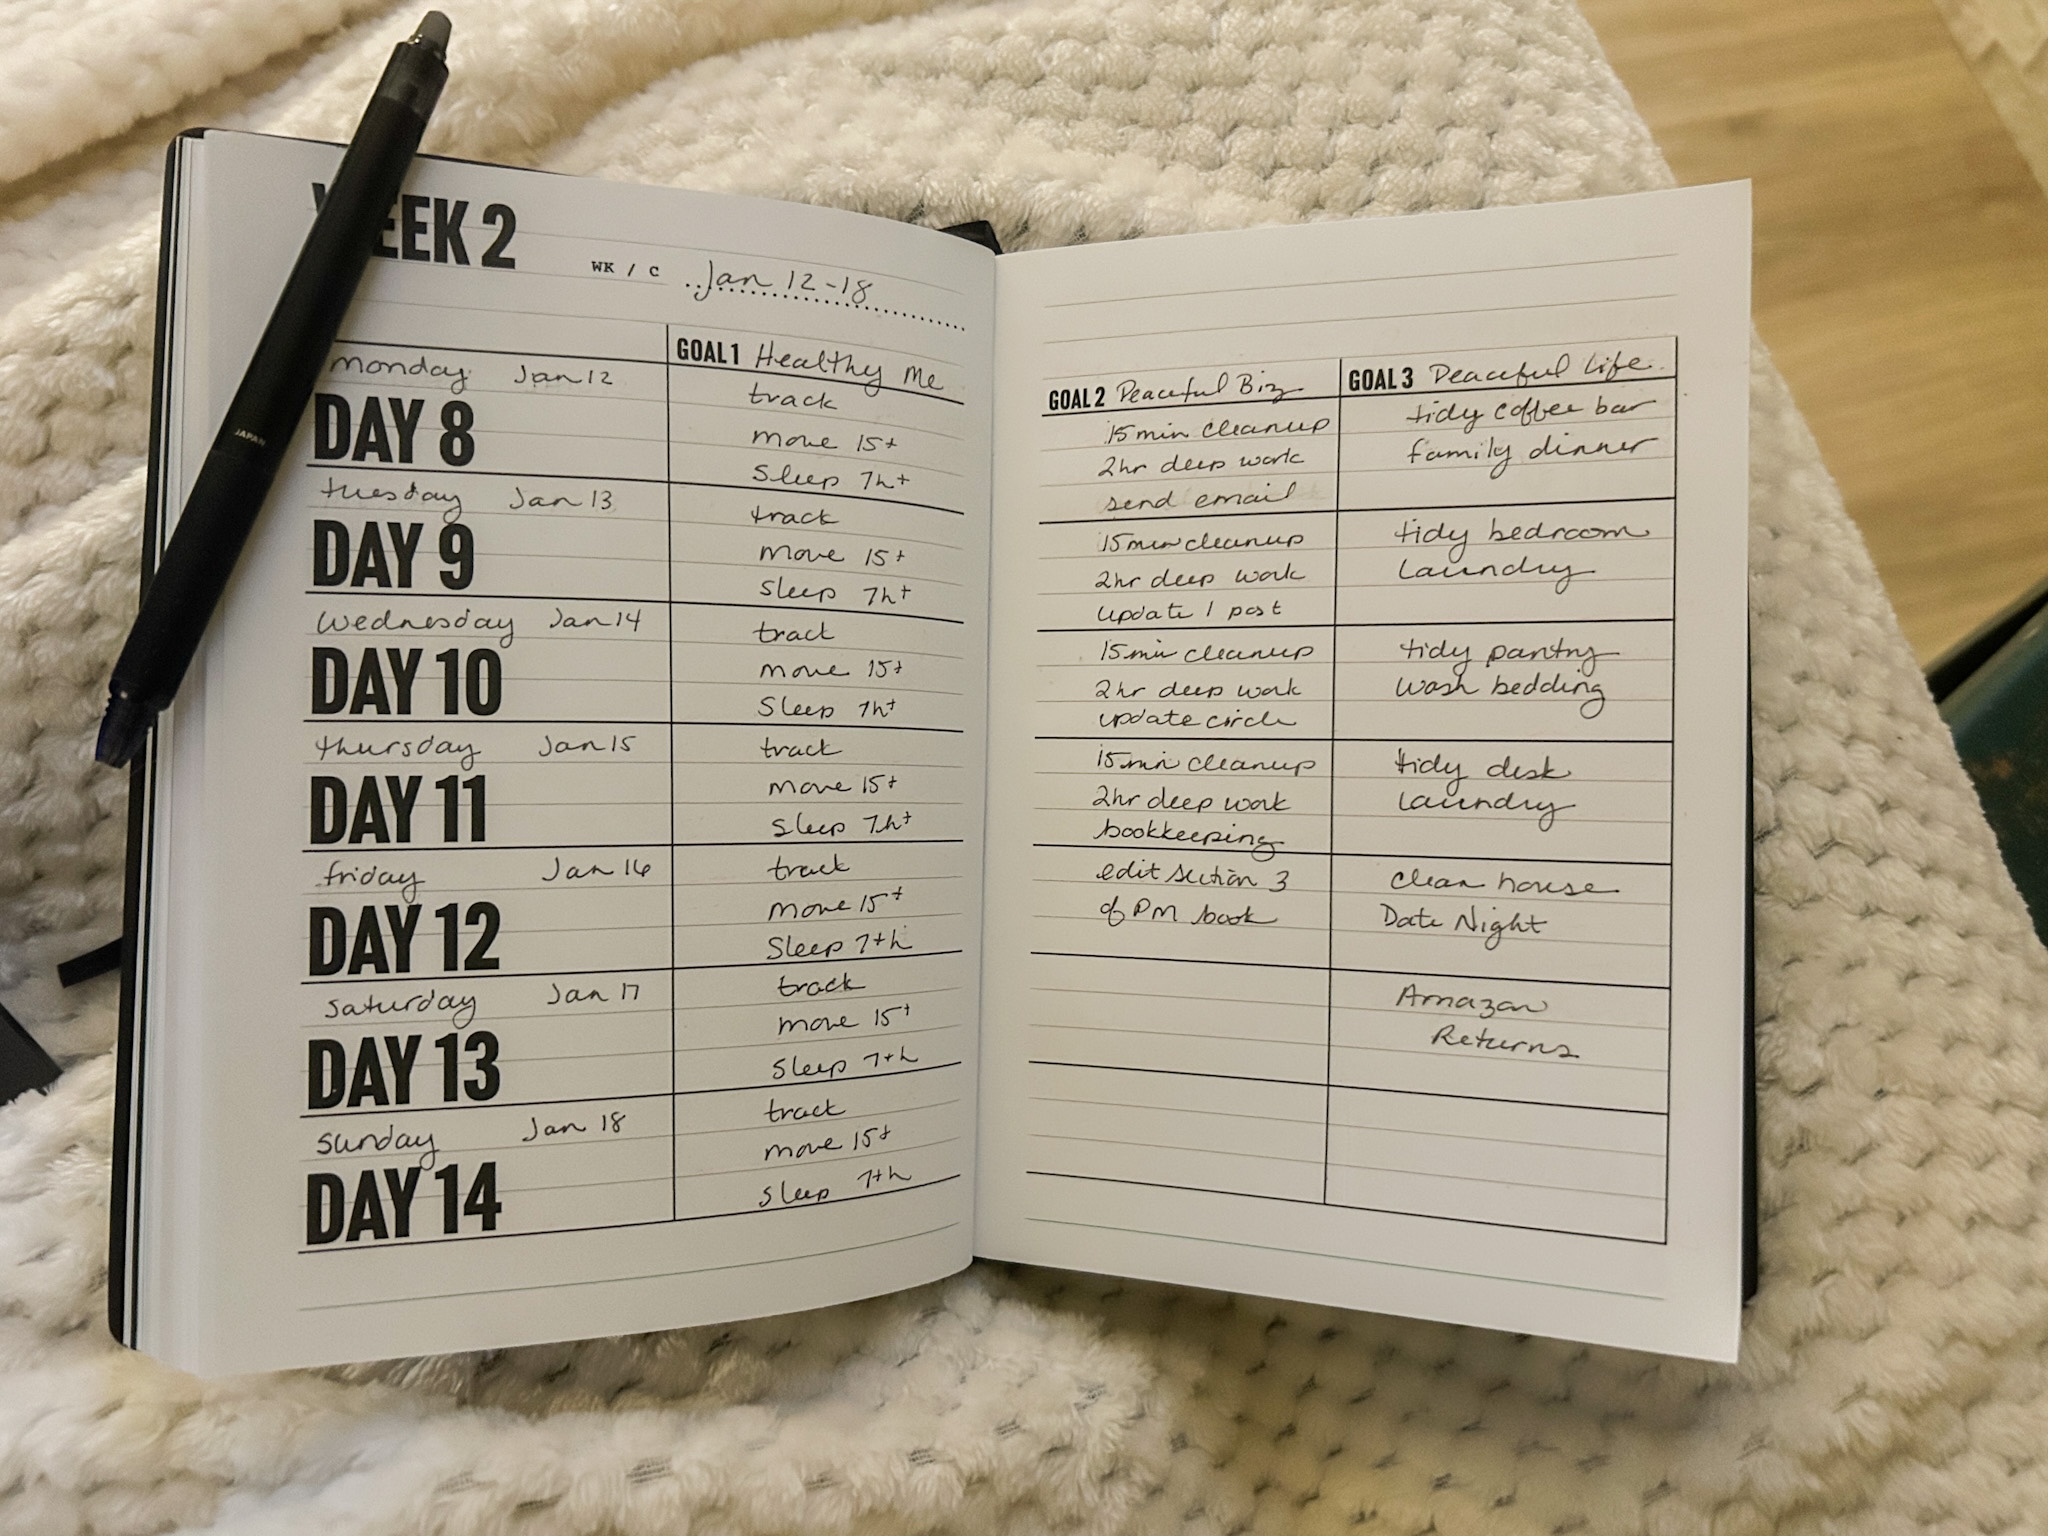 WEEK 2
WK / C Jan 12-18
GOAL 1 Healthy Me
monday Jan 12
DAY 8
track
move 15+
Sleep 7h+
tuesday Jan 13
DAY 9
track
move 15+
Sleep 7h+
wednesday Jan 14
DAY 10
track
move 15+
Sleep 7h+
thursday Jan 15
DAY 11
track
move 15+
Sleep 7h+
friday Jan 16
DAY 12
track
move 15+
Sleep 7+h
saturday Jan 17
DAY 13
track
move 15+
sleep 7+h
sunday Jan 18
DAY 14
track
move 15+
sleep 7+h
JAPAN
GOAL 2 Peaceful Biz
15 min cleanup
2hr deep work
send email
15 min cleanup
2hr deep work
update 1 post
15 min cleanup
2hr deep work
update circle
15 min cleanup
2hr deep work
bookkeeping
edit section 3
of PM book
GOAL 3 Peaceful Life
tidy coffee bar
family dinner
tidy bedroom
Laundry
tidy pantry
wash bedding
tidy desk
Laundry
Clean house
Date Night
Amazon
Returns